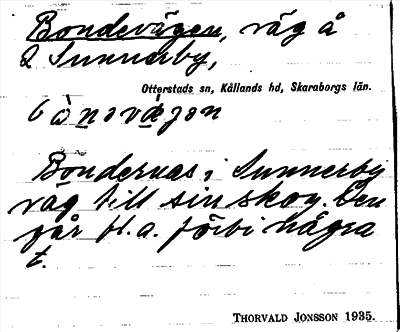 Bondevägen, väg å
Q Sunnerby,
Otterstads sn, Kållands hd, Skaraborgs län.
Böndernas i Sunnerby
väg till sin skog. Den
går bl.a. förbi några
t.
THORVALD JONSSON 1935.